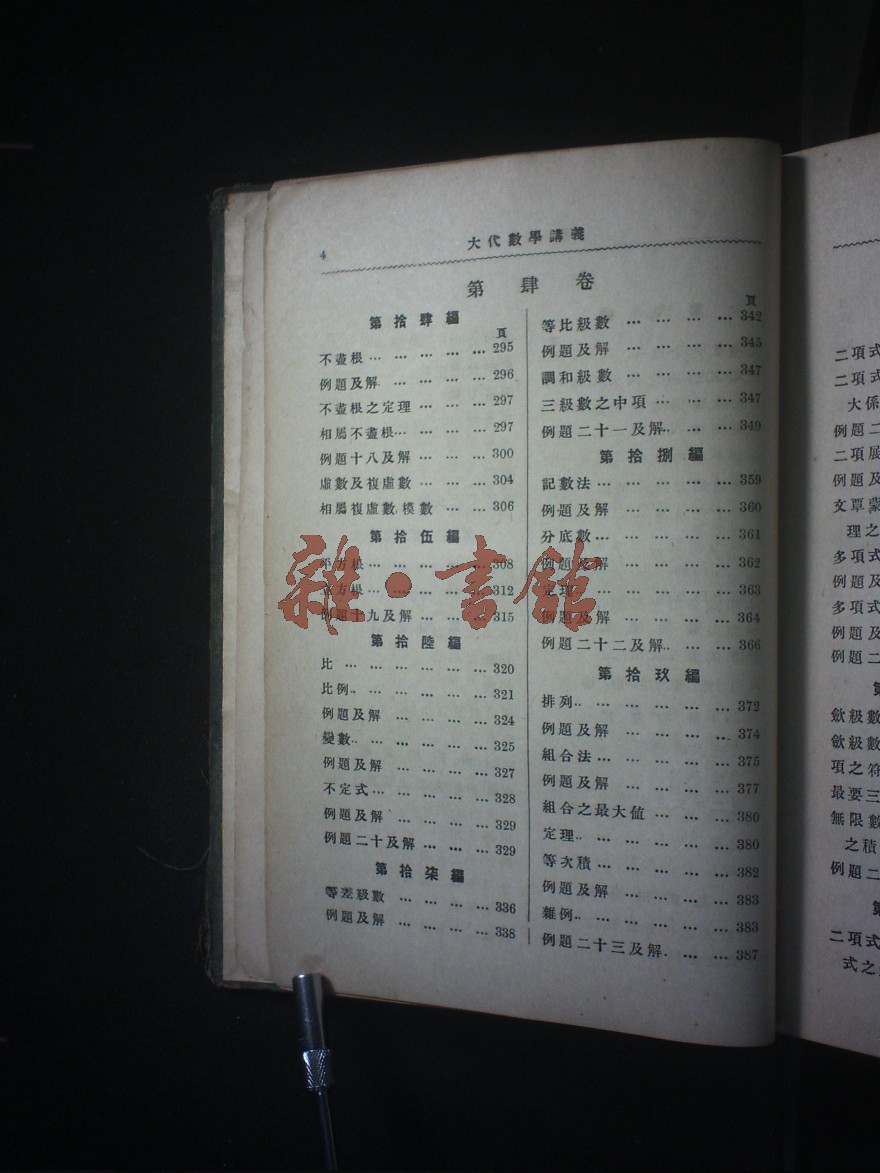 4
大代數學講義
第肆卷
第拾肆編
頁
不盡根 … … … … … 295
例題及解 … … … … 296
不盡根之定理 … … … 297
相屬不盡根… … … … 297
例題十八及解 … … … 300
虛數及複虛數 … … … 304
相屬複虛數,模數 … … 306
第拾伍編
平方根 … … … … … 308
立方根 … … … … … 312
例題十九及解 … … … 315
第拾陸編
比 … … … … … … 320
比例.. … … … … … 321
例題及解 … … … … 324
變數.. … … … … … 325
例題及解 … … … … 327
不定式 … … … … … 328
例題及解 … … … … 329
例題二十及解 … … … 329
第拾柒編
等差級數 … … … … 336
例題及解 … … … … 338
頁
等比級數 … … … … … 342
例題及解 … … … … … 345
調和級數 … … … … … 347
三級數之中項 … … … … 347
例題二十一及解.. … … … 349
第拾捌編
記數法 … … … … … 359
例題及解 … … … … … 360
分底數 … … … … … 361
例題及解 … … … … … 362
定理.. … … … … … 363
例題及解 … … … … … 364
例題二十二及解.. … … … 366
第拾玖編
排列.. … … … … … … 372
例題及解 … … … … … 374
組合法 … … … … … 375
例題及解 … … … … … 377
組合之最大値 … … … … 380
定理.. … … … … … 380
等次積 … … … … … … 382
例題及解 … … … … … 383
雜例.. … … … … … 383
例題二十三及解. … … … 387
二項式
二項式
大係
例題二
二項展
例題及
文覃蒙
理之
多項式
例題及
多項式
例題及
例題二
斂級數
斂級數
項之符
最要三
無限數
之積
例題二
二項式
式之
雜·書館